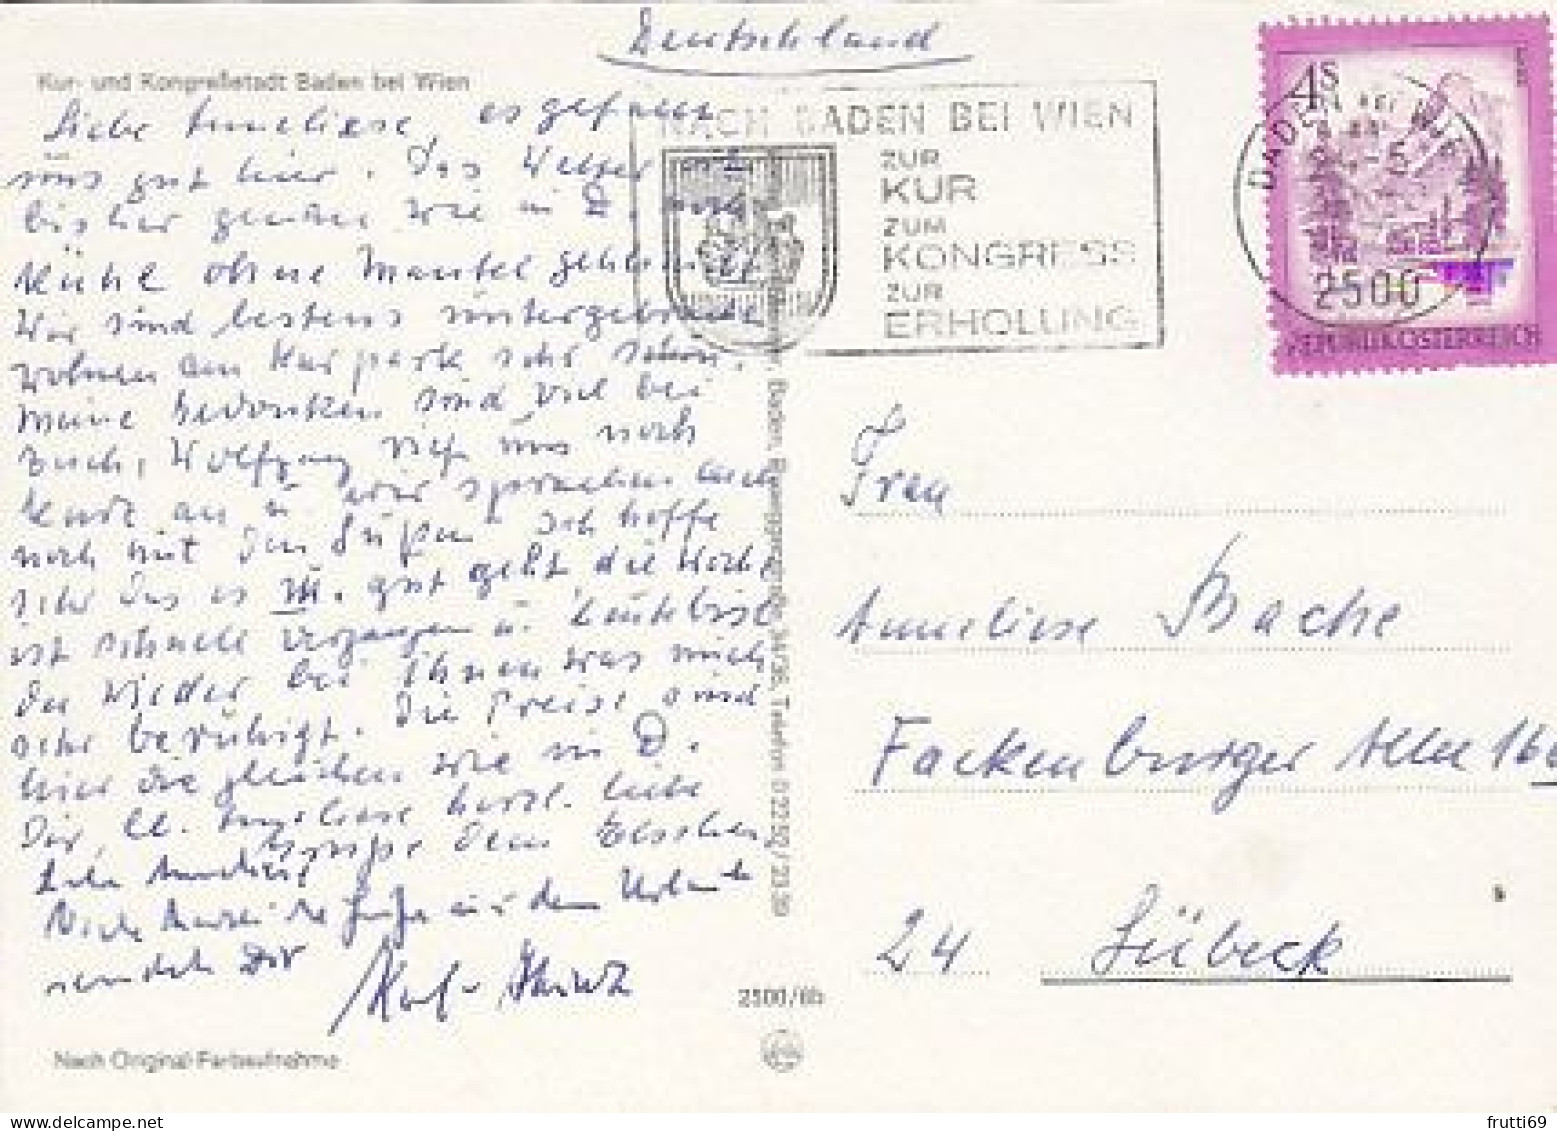 Deutschland
Kur- und Kongreßstadt Baden bei Wien
Liebe Anneliese, es gefällt
uns gut hier. Das Wetter ist
bisher genau wie in D.
Kühl ohne Mantel geht
Wir sind bestens untergebracht
wohnen am Kurpark sehr schön.
Meine Gedanken sind viel bei
Euch, Wolfgang rief uns noch
kurz an u. wir sprachen auch
noch mit den Süßen Ich hoffe
sehr das es gut geht, die Woche
ist schnell vergangen u.
Du wieder bei Ihnen was mich
sehr beruhigt. Die Preise sind
hier die gleichen wie in D.
Dir, lb. Anneliese herzl. liebe
Grüße Dein
Liebe Anneliese
Grüße aus dem Urlaub
sendet Dir
Karl-Heinz
Nach Original-Farbaufnahme
2500/6b
Baden, 34/36, Telefon 0 22 52 / 23 39
NACH BADEN BEI WIEN
ZUR
KUR
ZUM
KONGRESS
ZUR
ERHOLUNG
4S
BADEN BEI WIEN
2500
REPUBLIK ÖSTERREICH
Frau
Anneliese Bache
Fackenburger Allee 166
24 Lübeck
frutti69